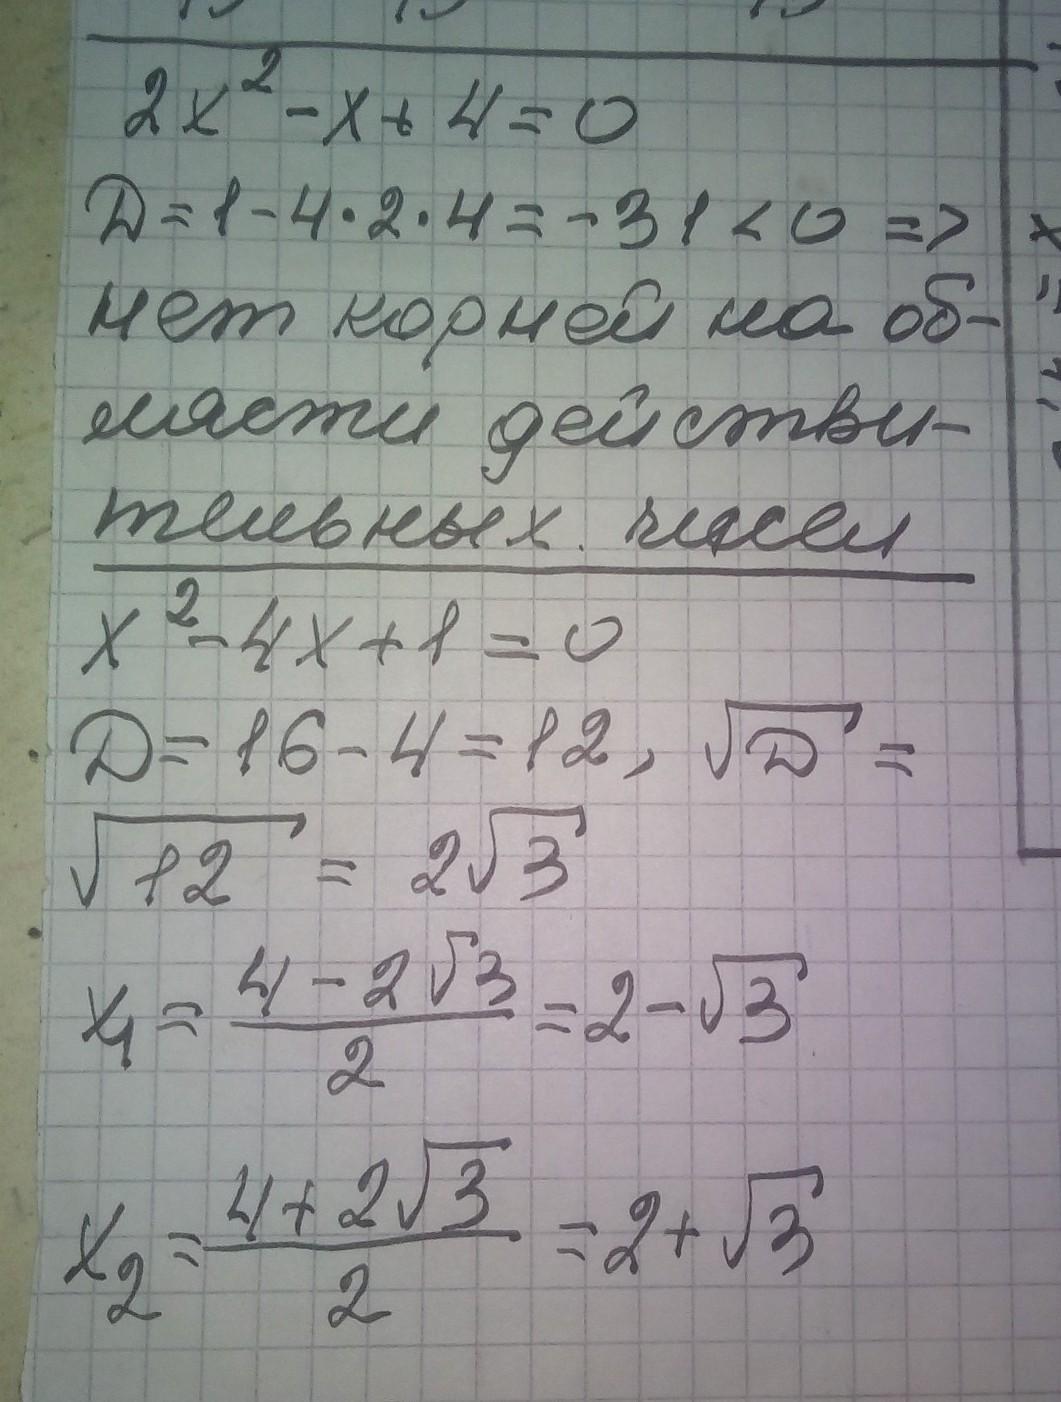 2x² - x + 4 = 0
D = 1 - 4 · 2 · 4 = -31 < 0 =>
нет корней на об-
ласти действи-
тельных чисел
x² - 4x + 1 = 0
D = 16 - 4 = 12, √D =
√12 = 2√3
x₁ = (4 - 2√3)/2 = 2 - √3
x₂ = (4 + 2√3)/2 = 2 + √3